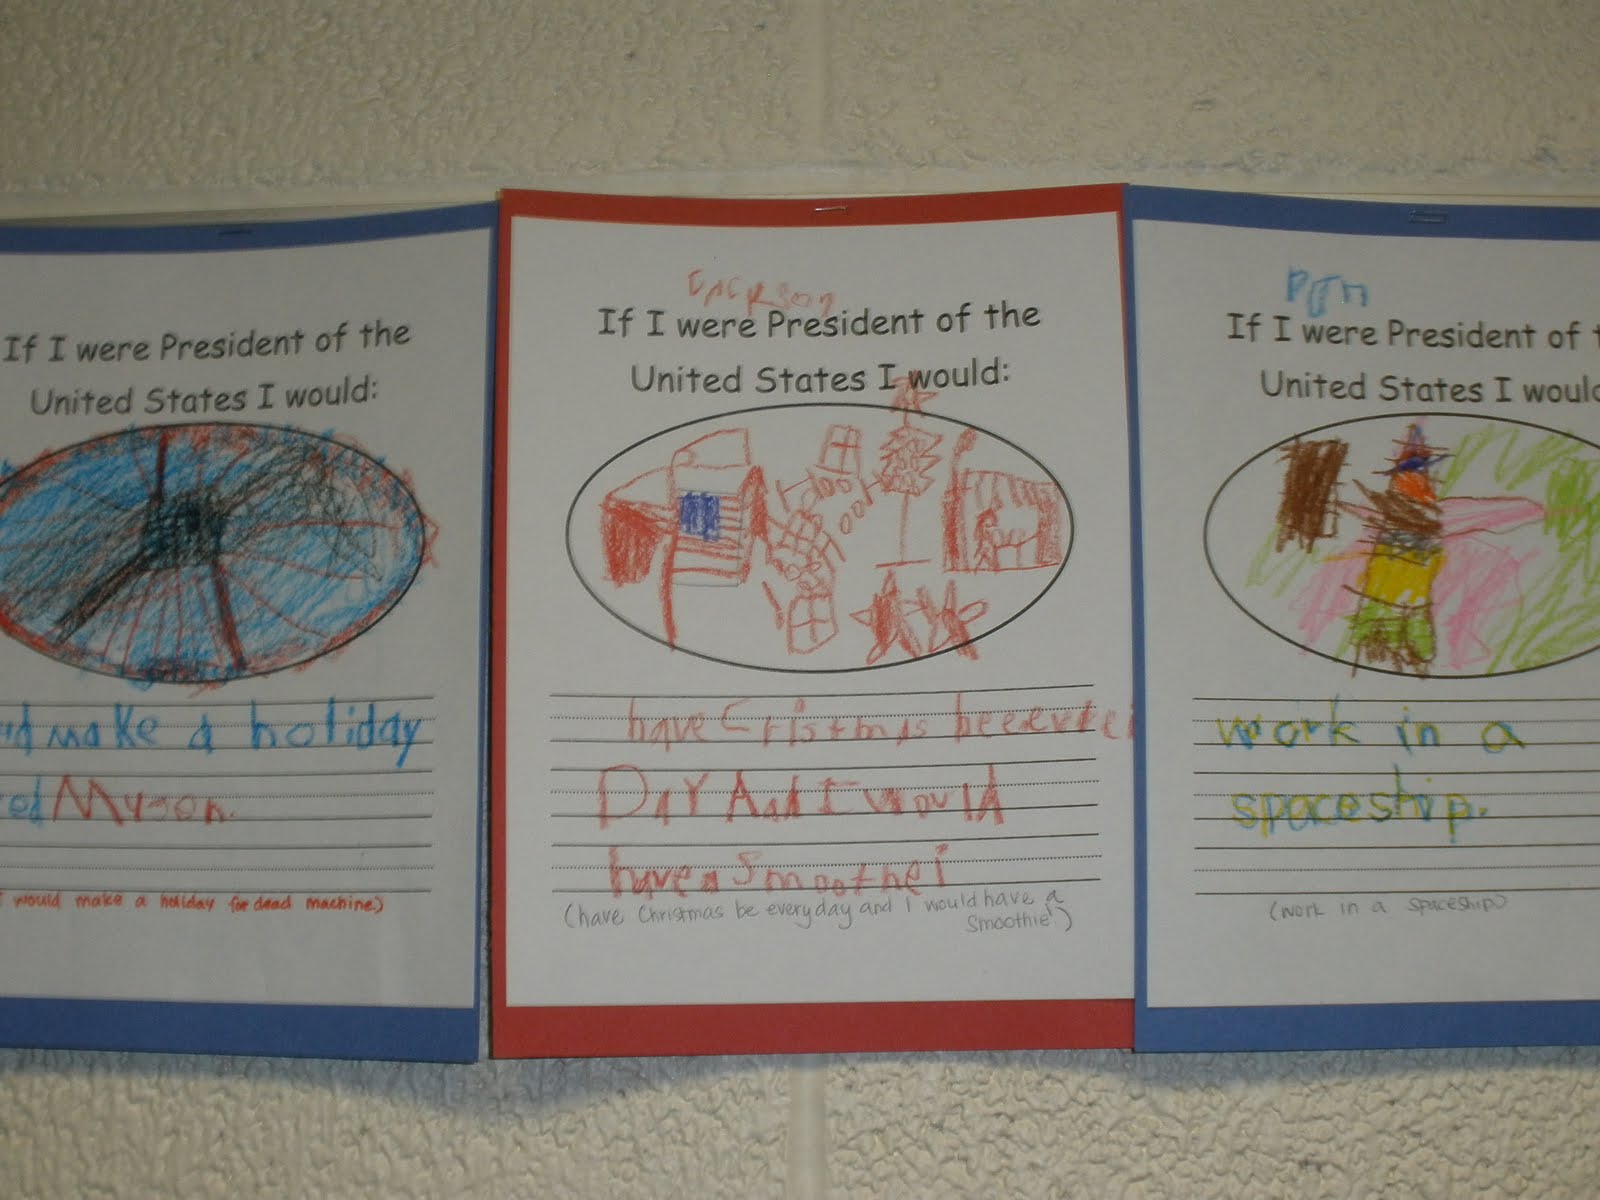 If I were President of the
United States I would:
make a holiday
Myson.
I would make a holiday for dead machine.)
Jackson
If I were President of the
United States I would:
have Cristmas beeevrei
DAY And I would
have a Smoothei
(have Christmas be everyday and I would have a
Smoothie!)
If I were President of
United States I would
work in a
spaceship.
(work in a spaceship)